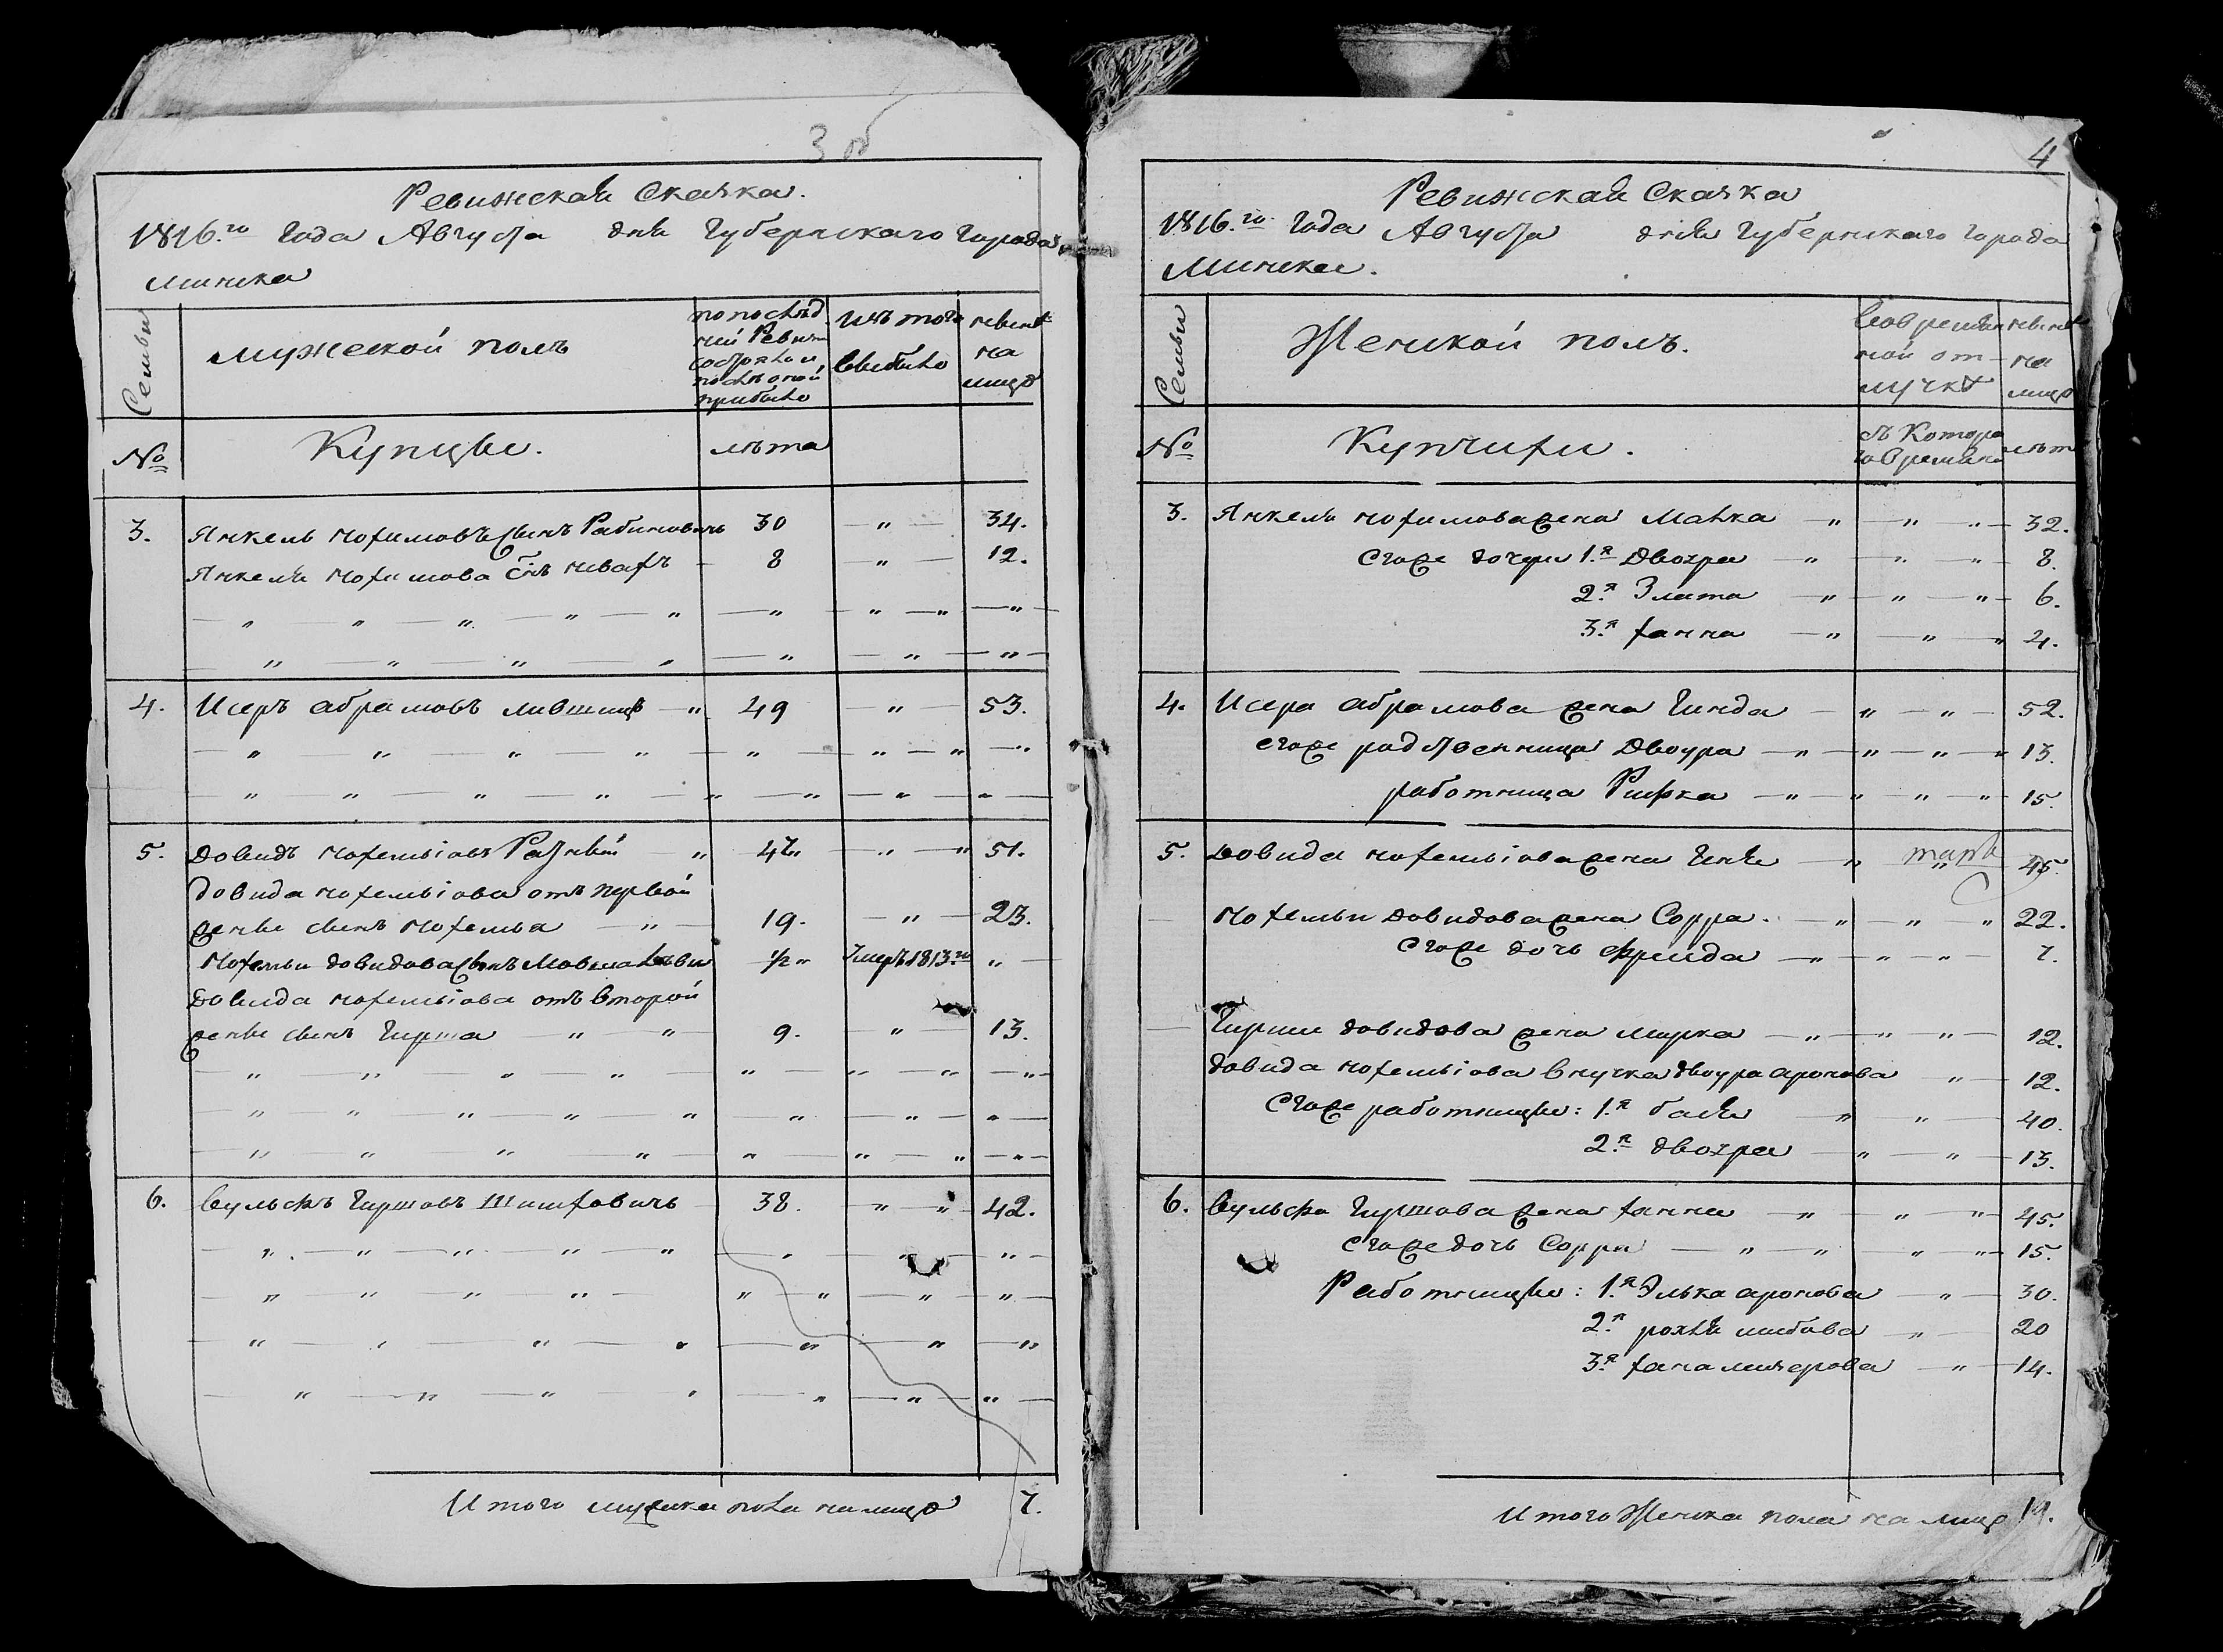 3 об
Ревижская Сказка.
1816.го Года Августа дня Губернскаго Города
Минска
Семьи
мужеской полъ
по послѣд
ней Ревизи
состояло и
послѣ оной
прибыло
изъ того
выбыло
нынѣ
на
лицо
№
Купцы.
лѣта
3. Янкель Нохимовъ сынъ Рабиновичь 30 " 34.
Янкеля Нохимова сынъ 8 " 12.
4. Исеръ Абрамовъ Лившицъ " 49 " 53.
5. Довидъ Нохемьіовъ " 47 " 51.
Довида Нохемьіова отъ первой
жены сынъ Нохемья " 19. " 23.
Нохемьи Довидова сынъ 1/2 умеръ 1813.го "
Довида Нохемьіова отъ второй
жены сынъ Гирша " " 9. " 13.
6. Вульфъ Гиршовъ 38. " " 42.
Итого мужска пола на лицо 7.
4
Ревижская Сказка
1816.го Года Августа дня Губернскаго Города
Минска.
Семьи
Женской полъ.
Во времян
ной от-
лучкѣ
нынѣ
на
лицо
№
Купчихи.
съ Котора
го Времяни
лѣта
3. Янкеля Нохимова жена Малка " " " 32.
Егоже дочери 1.я Двохра " " " 8.
2.я Злата " " " 6.
3.я Ханна " " " 4.
4. Исера Абрамова жена Гинда " " 52.
егоже родственница Двоура " " " " 13.
работница Рифка " " " " 15.
5. Довида Нохемьіова жена " " 45.
Нохемьи Довидова жена Сорра. " " " 22.
Егоже дочь Фрейда " " " 7.
Гирши Довидова жена Мирка " " " 12.
Довида Нохемьіова внучка Двоура Аронова " 12.
Егоже работницы: 1.я Бася " " 40.
2.я Двохра " " 13.
6. Вульфа Гиршова жена Ханна " " " 45.
Егоже дочь Сорря " " " " 15.
Работницы: 1.я Элька Аронова " 30.
2.я Рохля " 20
3.я Хана " 14.
Итого Женска пола на лицо 19.